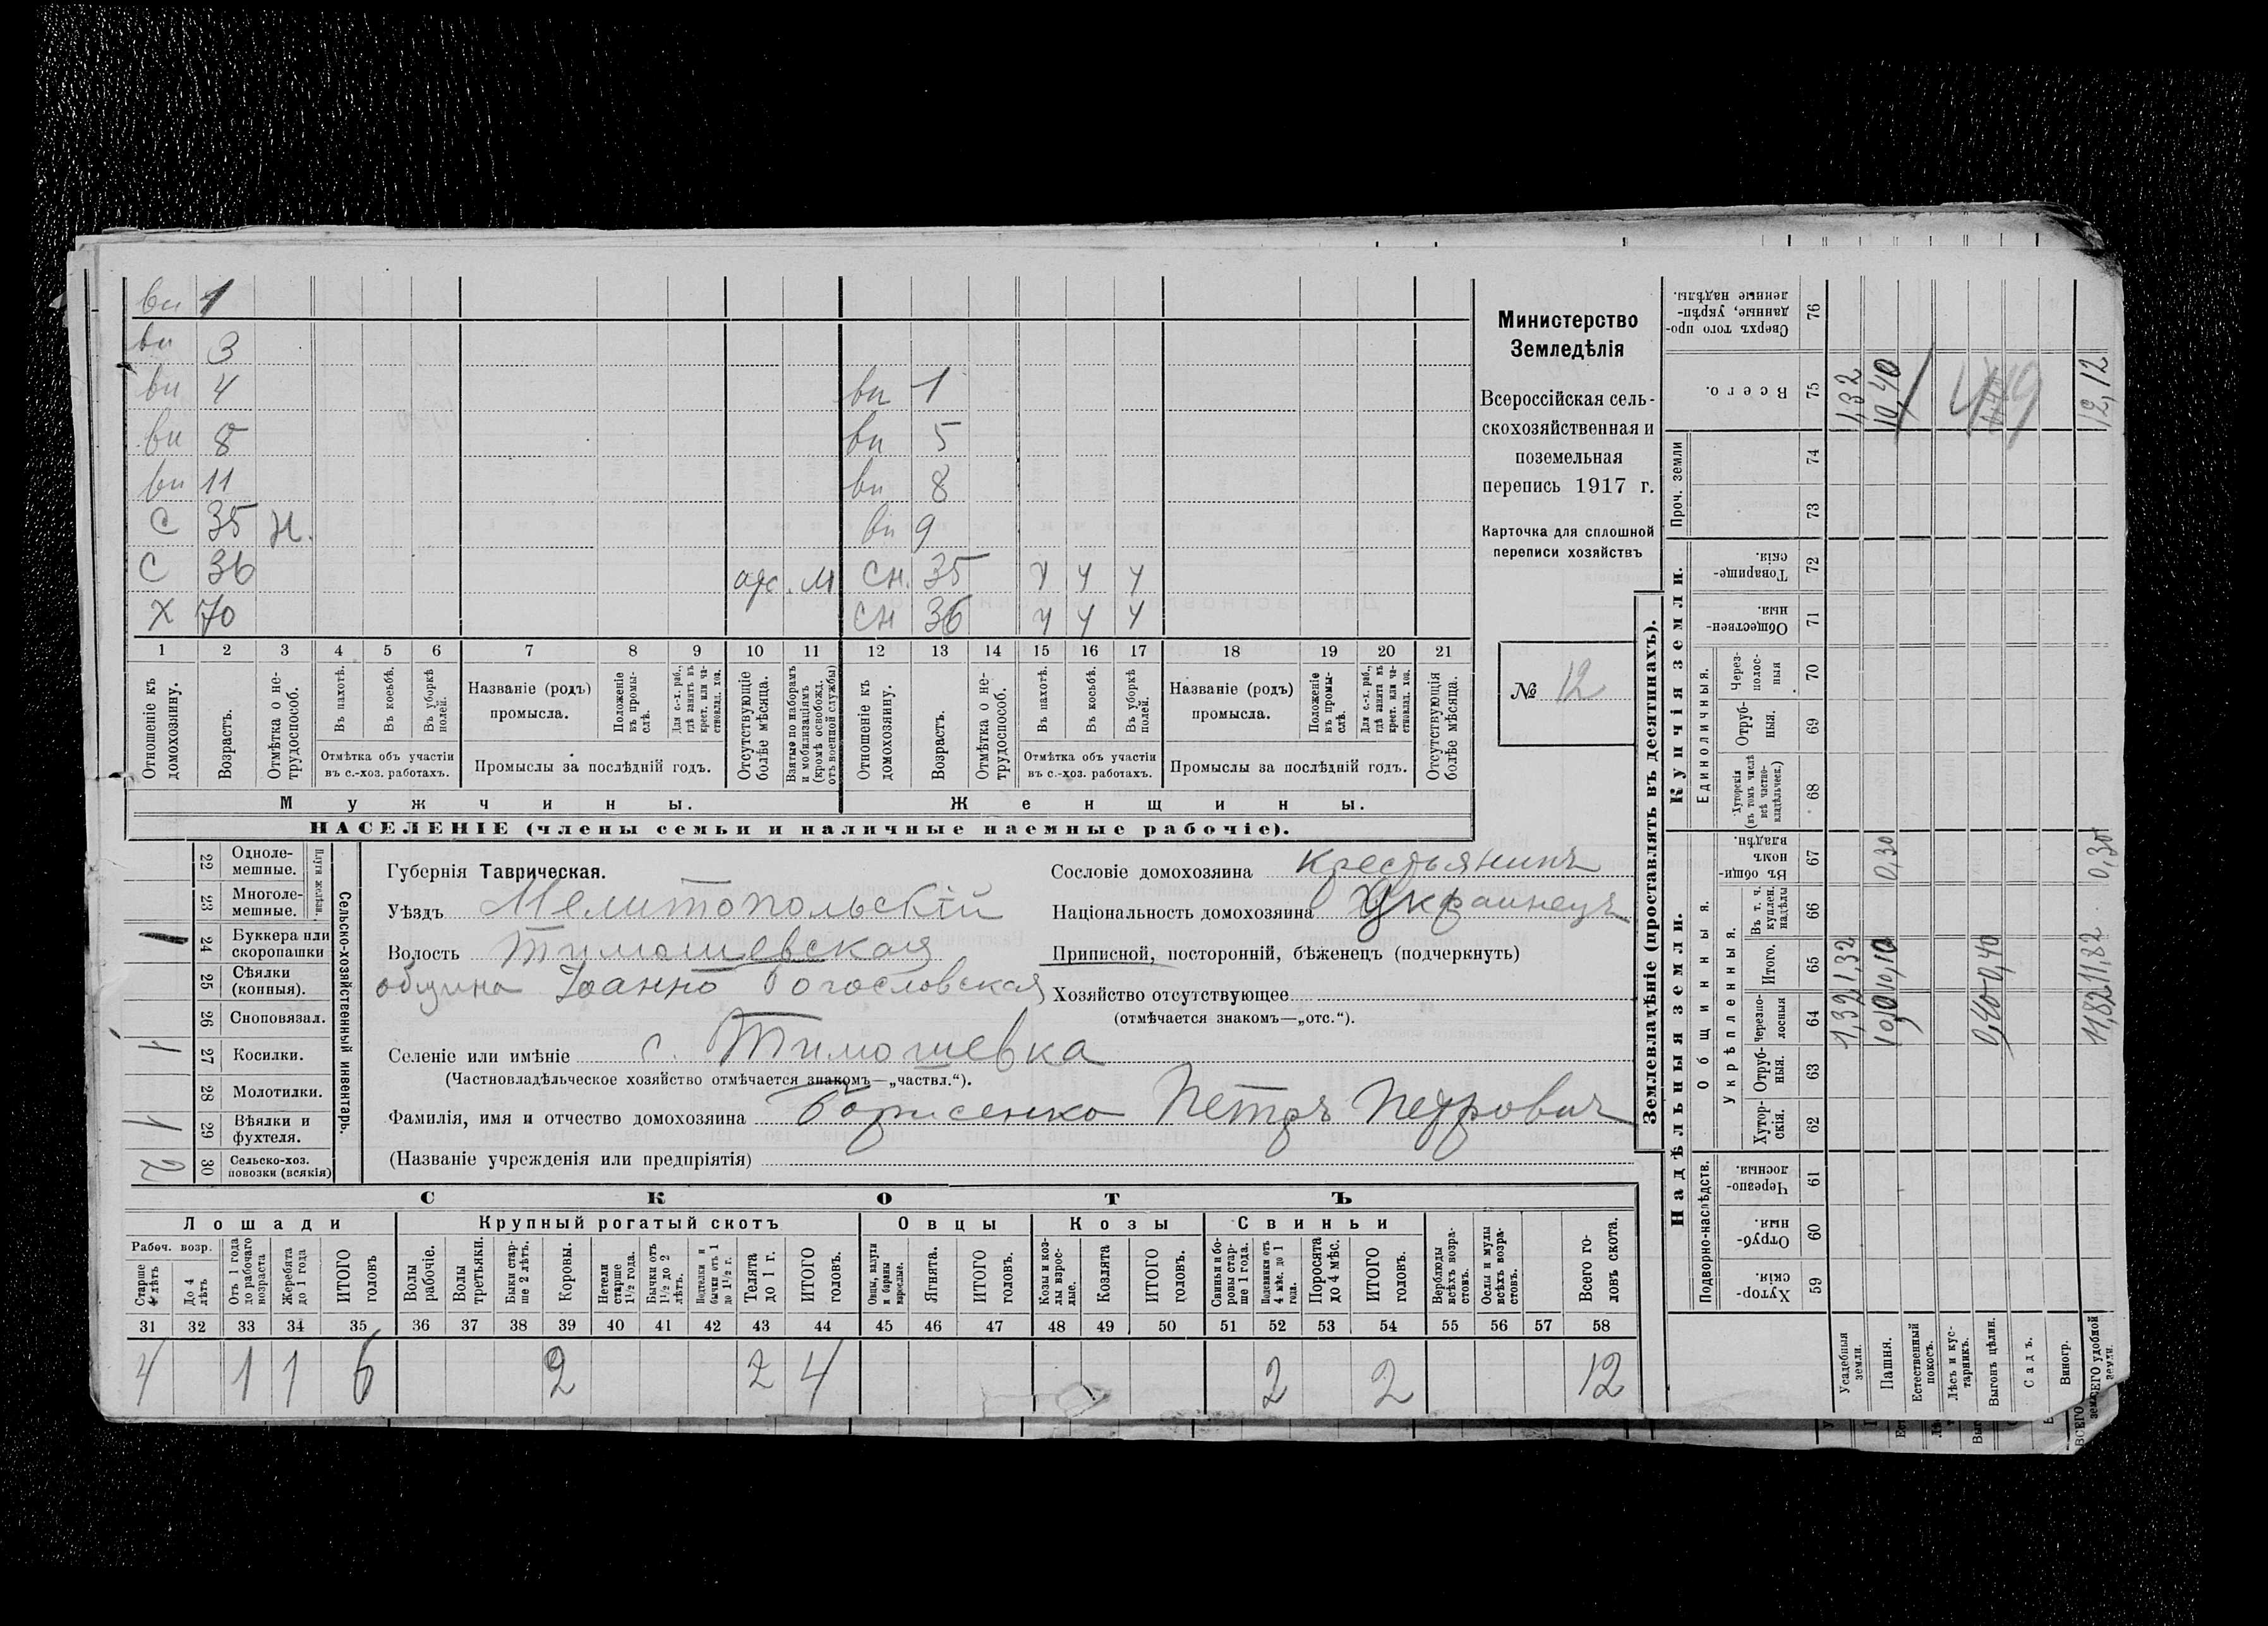 вн 1
вн 3
вн 4 вн 1
вн 8 вн 5
вн 11 вн 8
С 35 н. вн 9
С 36 отс. М сн. 35 ч ч ч
Х 70 сн 36 ч ч ч
1 2 3 4 5 6 7 8 9 10 11 12 13 14 15 16 17 18 19 20 21
Отношеніе къ домохозяину.
Возрастъ.
Отмѣтка о не-
трудоспособ.
Въ пахотѣ.
Въ косьбѣ.
Въ уборкѣ полей.
Отмѣтка объ участіи
въ с.-хоз. работахъ.
Названіе (родъ)
промысла.
Положеніе
въ промы-
слѣ.
Для с.-х. раб.,
гдѣ занятъ въ
крест. или ча-
стновлад. хоз.
Промыслы за послѣдній годъ.
Отсутствующіе
болѣе мѣсяца.
Взятые по наборамъ
и мобилизаціямъ
(кромѣ освобожд.
отъ военной службы)
Отношеніе къ
домохозяину.
Возрастъ.
Отмѣтка о не-
трудоспособ.
Въ пахотѣ.
Въ косьбѣ.
Въ уборкѣ
полей.
Отмѣтка объ участіи
въ с.-хоз. работахъ.
Названіе (родъ)
промысла.
Положеніе
въ промы-
слѣ.
Для с.-х. раб.,
гдѣ занята въ
крест. или ча-
стновлад. хоз.
Промыслы за послѣдній годъ.
Отсутствующія
болѣе мѣсяца.
Мужчины.
Женщины.
НАСЕЛЕНІЕ (члены семьи и наличные наемные рабочіе).
Министерство
Земледѣлія
Всероссійская сель-
скохозяйственная и
поземельная
перепись 1917 г.
Карточка для сплошной
переписи хозяйствъ
№ 12
Плуги желѣзн.
22 Одноле-
мешные.
23 Многоле-
мешные.
1 24 Буккера или
скоропашки
25 Сѣялки
(конныя).
26 Сноповязал.
1 27 Косилки.
28 Молотилки.
1 29 Вѣялки и
фухтеля.
2 30 Сельско-хоз.
повозки (всякія)
Сельско-хозяйственный инвентарь.
Губернія Таврическая.
Уѣздъ Мелитопольскій
Волость Тимошевская
община Іоанно Богословская
Селеніе или имѣніе с. Тимошевка
(Частновладѣльческое хозяйство отмѣчается знакомъ—„частвл.“).
Фамилія, имя и отчество домохозяина Борисенко Петръ Петрович
(Названіе учрежденія или предпріятія)
Сословіе домохозяина Крестьянинъ
Національность домохозяина Украинецъ
Приписной, посторонній, бѣженецъ (подчеркнуть)
Хозяйство отсутствующее
(отмѣчается знакомъ—„отс.“).
СКОТЪ
Лошади
Крупный рогатый скотъ
Овцы
Козы
Свиньи
Рабоч. возр.
Старше
4 лѣтъ
До 4
лѣтъ
Отъ 1 года
до рабочаго
возраста
Жеребята
до 1 года
ИТОГО
головъ
Волы
рабочіе.
Волы
третьяки.
Быки стар-
ше 2 лѣтъ.
Коровы.
Нетели
старше
1½ года.
Бычки отъ
1½ до 2
лѣтъ.
Подтелки и
бычки отъ 1
до 1½ г.
Телята
до 1 г.
ИТОГО
головъ.
Овцы, валухи
и бараны
взрослые.
Ягнята.
ИТОГО
головъ.
Козы и коз-
лы взрос-
лые.
Козлята
ИТОГО
головъ.
Свиньи и бо-
ровы стар-
ше 1 года.
Подсвинки отъ
4 мѣс. до 1
года.
Поросята
до 4 мѣс.
ИТОГО
головъ.
Верблюды
всѣхъ возра-
стовъ.
Ослы и мулы
всѣхъ возра-
стовъ.
Всего го-
ловъ скота.
31 32 33 34 35 36 37 38 39 40 41 42 43 44 45 46 47 48 49 50 51 52 53 54 55 56 57 58
4 1 1 6 2 2 4 2 2 12
Землевладѣніе (проставлять въ десятинахъ).
Надѣльныя земли.
Купчія земли.
Проч. земли
Подворно-наслѣдств.
Общинныя.
Укрѣпленныя.
Единоличныя.
Хутор-
скія. 59
Отруб-
ныя. 60
Черезпо-
лосныя. 61
Хутор-
скія. 62
Отруб-
ныя. 63
Черезпо-
лосныя 64
Итого. 65
Въ т. ч.
куплен.
надѣлы 66
Въ общин-
номъ
владѣн. 67
Хуторскія
(въ томъ числѣ
всѣ частно-
владѣльческ.) 68
Отруб-
ныя. 69
Через-
полос-
ныя 70
Обществен-
ныя. 71
Товарище-
скія. 72
73
74
Всего. 75
Сверхъ того про-
данные, укрѣп-
ленные надѣлы. 76
Усадебныя
земли. 1,32 1,32 1,32
Пашня. 10,10 10,10 0,30 10,40
Естественный
покосъ.
Лѣсъ и кус-
тарникъ.
Выгонъ цѣлин. 0,40 0,40
Садъ.
Виногр.
ВСЕГО удобной
земли. 11,82 11,82 0,30 12,12